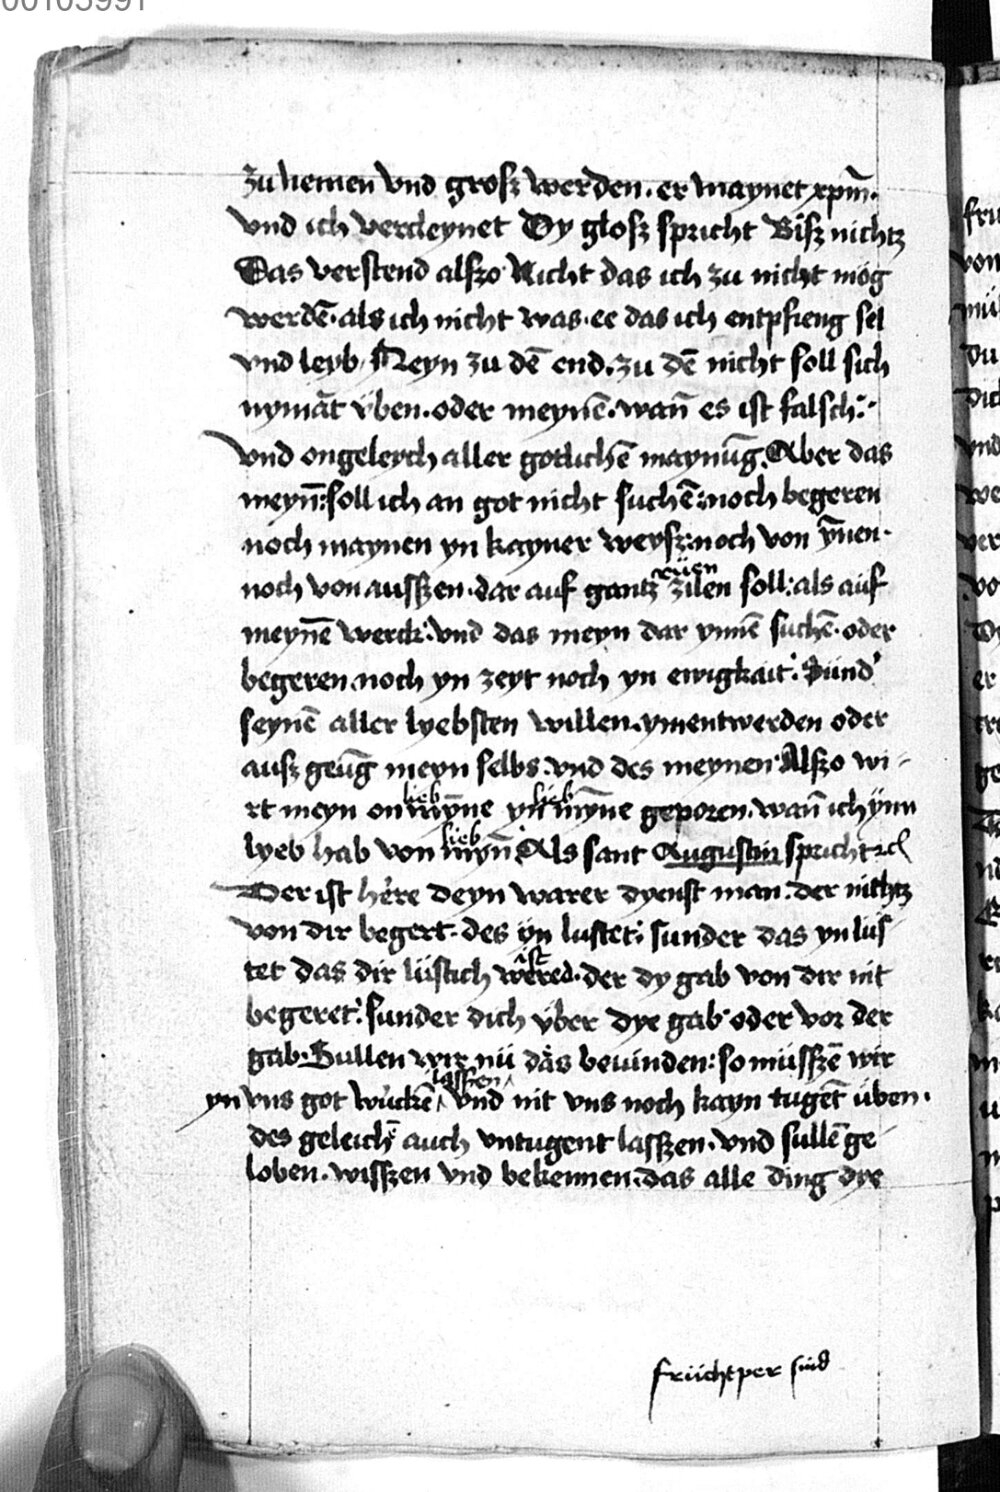 00103991
zu nemen vnd grosz werden. er maynet xpm̄.
vnd ich vercleynet Dy glosz spricht Bisz nichtz
Das verstend alszo Nicht das ich zu nicht mög
werdē. als ich nicht was. ee das ich entpfieng sel
vnd leyb. Neyn zu dē end. zu dē nicht soll sich
nymāt vben. oder meynē. wan̄ es ist falsch:
vnd ongeleych aller gotlichē maynūg. Aber das
meyn̄: soll ich an got nicht suchē: noch begeren
noch maynen yn kayner weysz: noch von ȳnen.
noch von ausszen. dar auf gantz zilen soll: als auf
rüen
meynē werck: vnd das meyn dar ynnē suchē. oder
begeren. noch yn zeyt noch yn ewigkait: Sünd'
seynē aller lyebsten willen. ymentwerden oder
ausz geūg meyn selbs. vnd des meynen Alszo wi-
rt meyn on mȳne yn mȳne geporen. wan̄ ich ÿnn
lieb lieb
lyeb hab von myn̄. Als sant Augustin spricht
lieb
Der ist hėre deyn warer dyenst man: der nichtz
von dir begert. des ÿn lustet: sunder das yn lus
tet das dir lüstich wered. der dy gab von dir nit
ist
begeret: sunder dich vber dye gab oder vor der
gab. Sullen wir nü das beuinden: so müsszē wir
yn vns got würckē vnd nit vns noch kayn tugēt üben.
lasszen
des geleichē auch vntugent lasszen. vnd sullē ge-
loben. wisszen vnd bekennen. das alle ding dye
früchtper sind